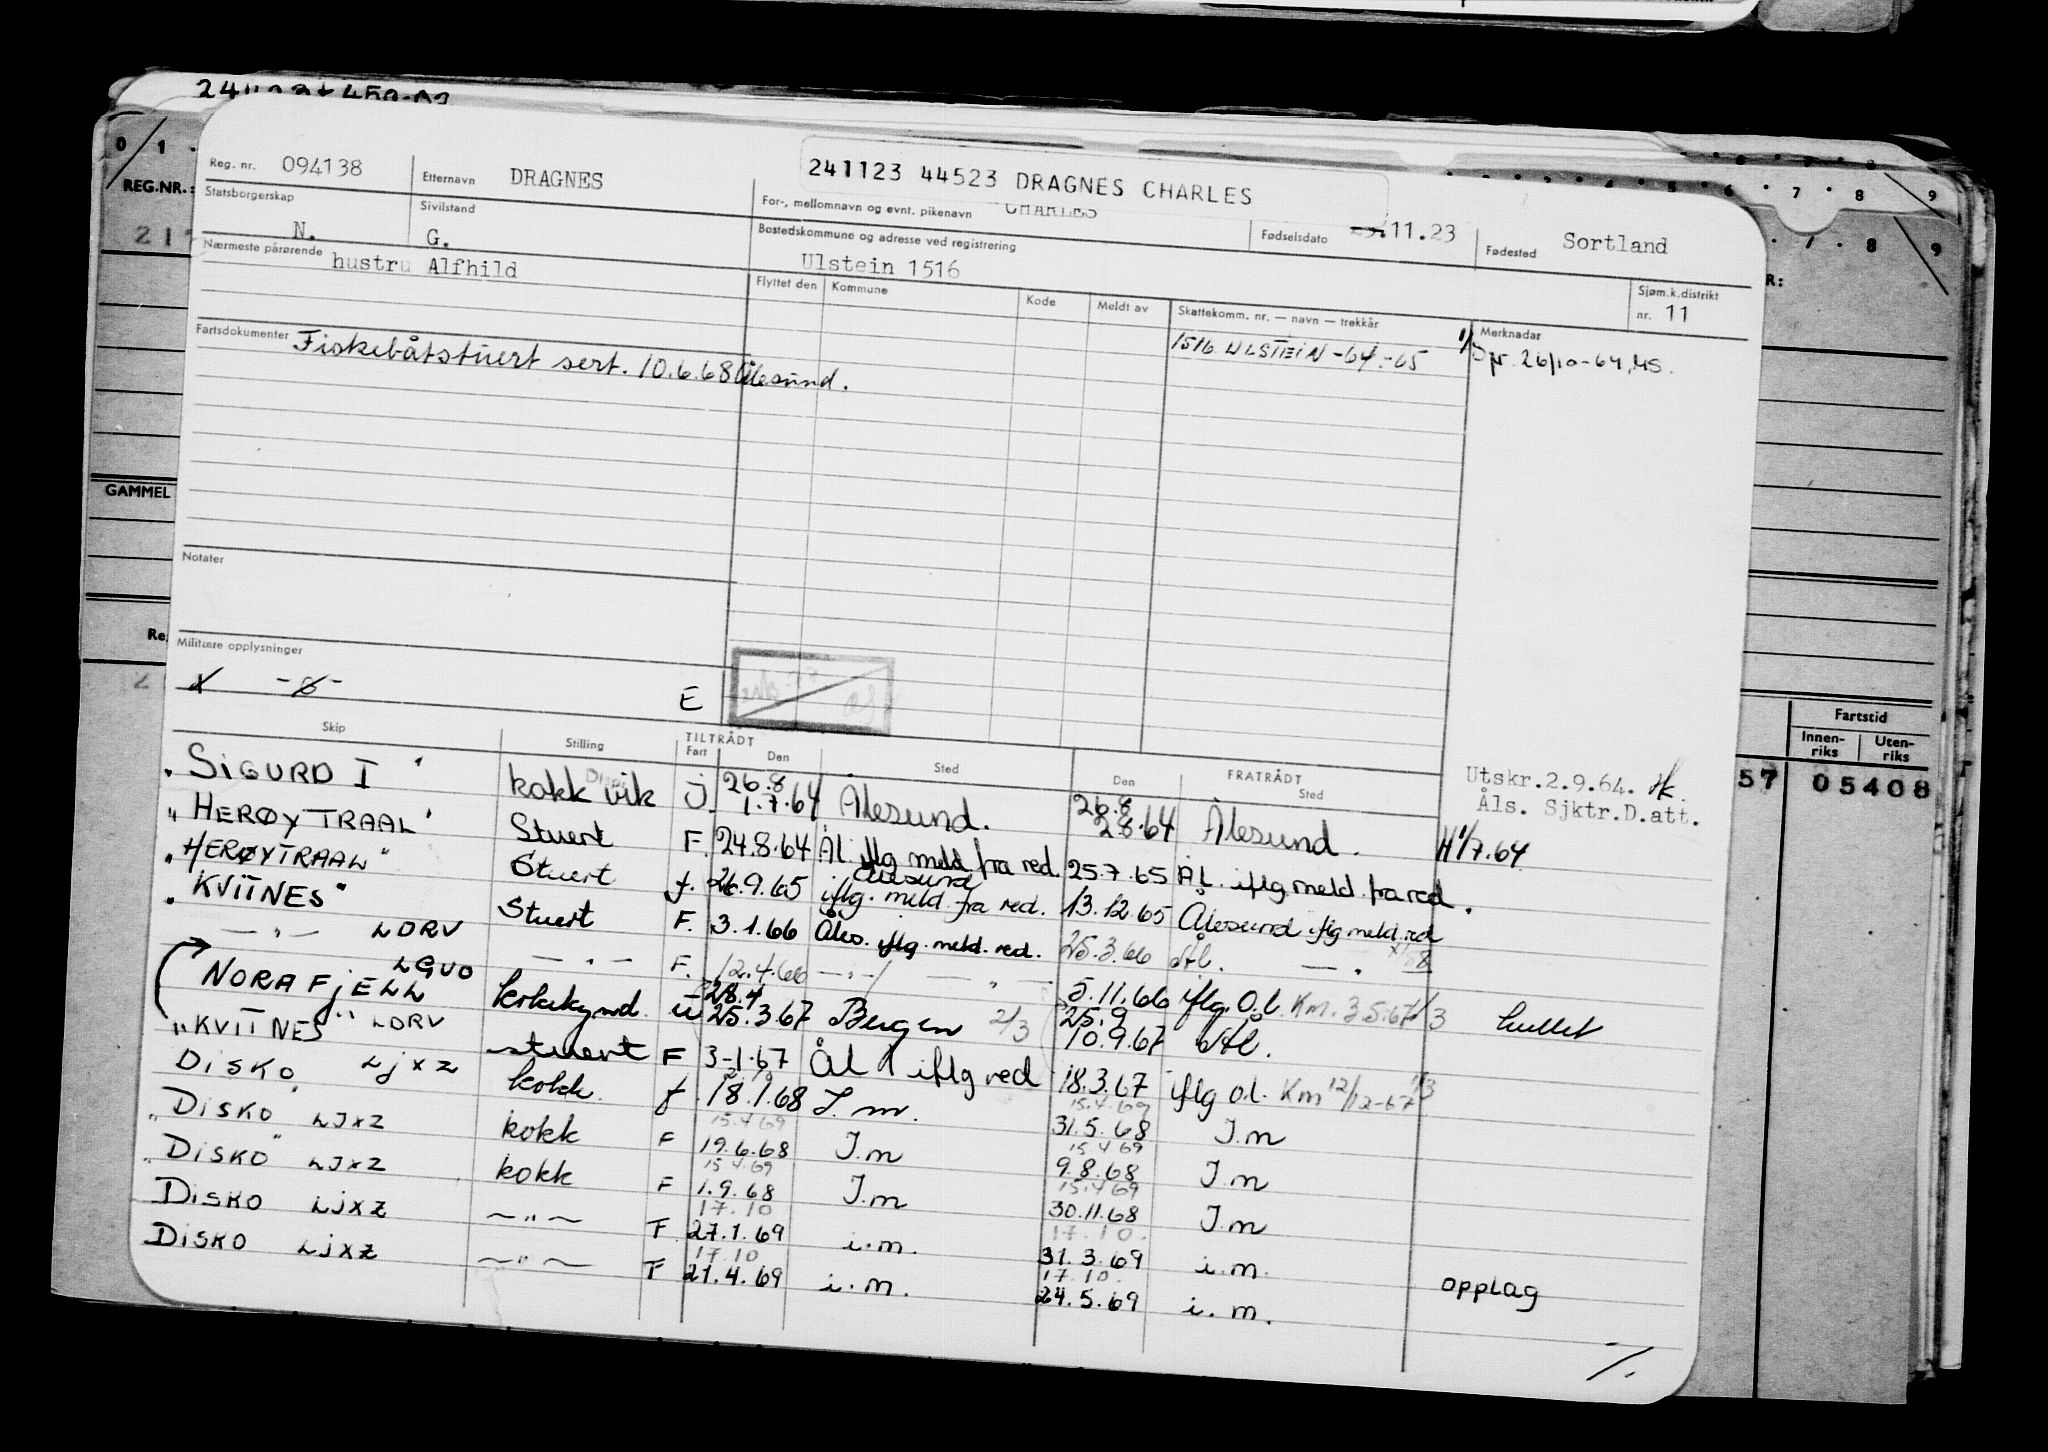 REG.NR.:
241123 44523 DRAGNES CHARLES
Reg. nr. 094138 Etternavn DRAGNES For-, mellomnavn og evnt. pikenavn CHARLES Fødselsdato .11.23 Fødested Sortland
Statsborgerskap N. Sivilstand G. Bostedskommune og adresse ved registrering Ulstein 1516
Nærmeste pårørende hustru Alfhild Flyttet den Kommune Kode Meldt av Skattekomm. nr. — navn — trekkår Sjøm.k.distrikt nr. 11
Fartsdokumenter Fiskebåtstuert sert. 10.6.68 Ålesund. 1516 ULSTEIN -64.-65 Merknader pr. 26/10-64, MS.
GAMMEL
Notater
Militære opplysninger
E
Fartstid
Innen-riks Uten-riks
57 05408
Skip Stilling TILTRÅDT Fart Den Sted FRATRÅDT Den Sted
Utskr.2.9.64.
Åls. Sjktr.D.att.
"SIGURD I" kokk vik J. 26.8 1.7.64 Ålesund. 26.8 2.8.64 Ålesund. H 1/7.64
"HERØYTRAAL" Stuert F. 24.8.64 Ål. iflg meld fra red. 25.7.65 ÅL. iflg meld. fra red.
"HERØYTRAAL" Stuert f. 26.9.65 Ålesund iflg. meld. fra red. 13.12.65 Ålesund iflg meld. red
"KVITNES" Stuert F. 3.1.66 Åles. iflg. meld. red. 25.3.66 Ål.
— " — LDRV — " — F. 12.4.66 — " — 5.11.66 iflg. O.l. Km. 3.5.67 1/3
NORAFJELL LGUO kokskynd. u 28.4 25.3.67 Bergen 2/3 25.9 10.9.67 Ål. hullet
"KVITNES" LDRV stuert F 3-1.67 ÅL iflg red 18.3.67 iflg o.l. Km 12/12-67 1/3
DISKO LJXZ kokk f. 18.1.68 I.m. 15.4.69 31.5.68 I.m
"DISKO" LJXZ kokk F 15.4.69 19.6.68 I.m 15.4.69 9.8.68 I.m
"DISKO" LJXZ kokk F 15.4.69 1.9.68 I.m 15.4.69 30.11.68 I.m
DISKO LJXZ — " — F 17.10 27.1.69 i.m. 17.10. 31.3.69 i.m.
DISKO LJXZ — " — F 17.10 21.4.69 i.m. 17.10. 24.5.69 i.m. opplag